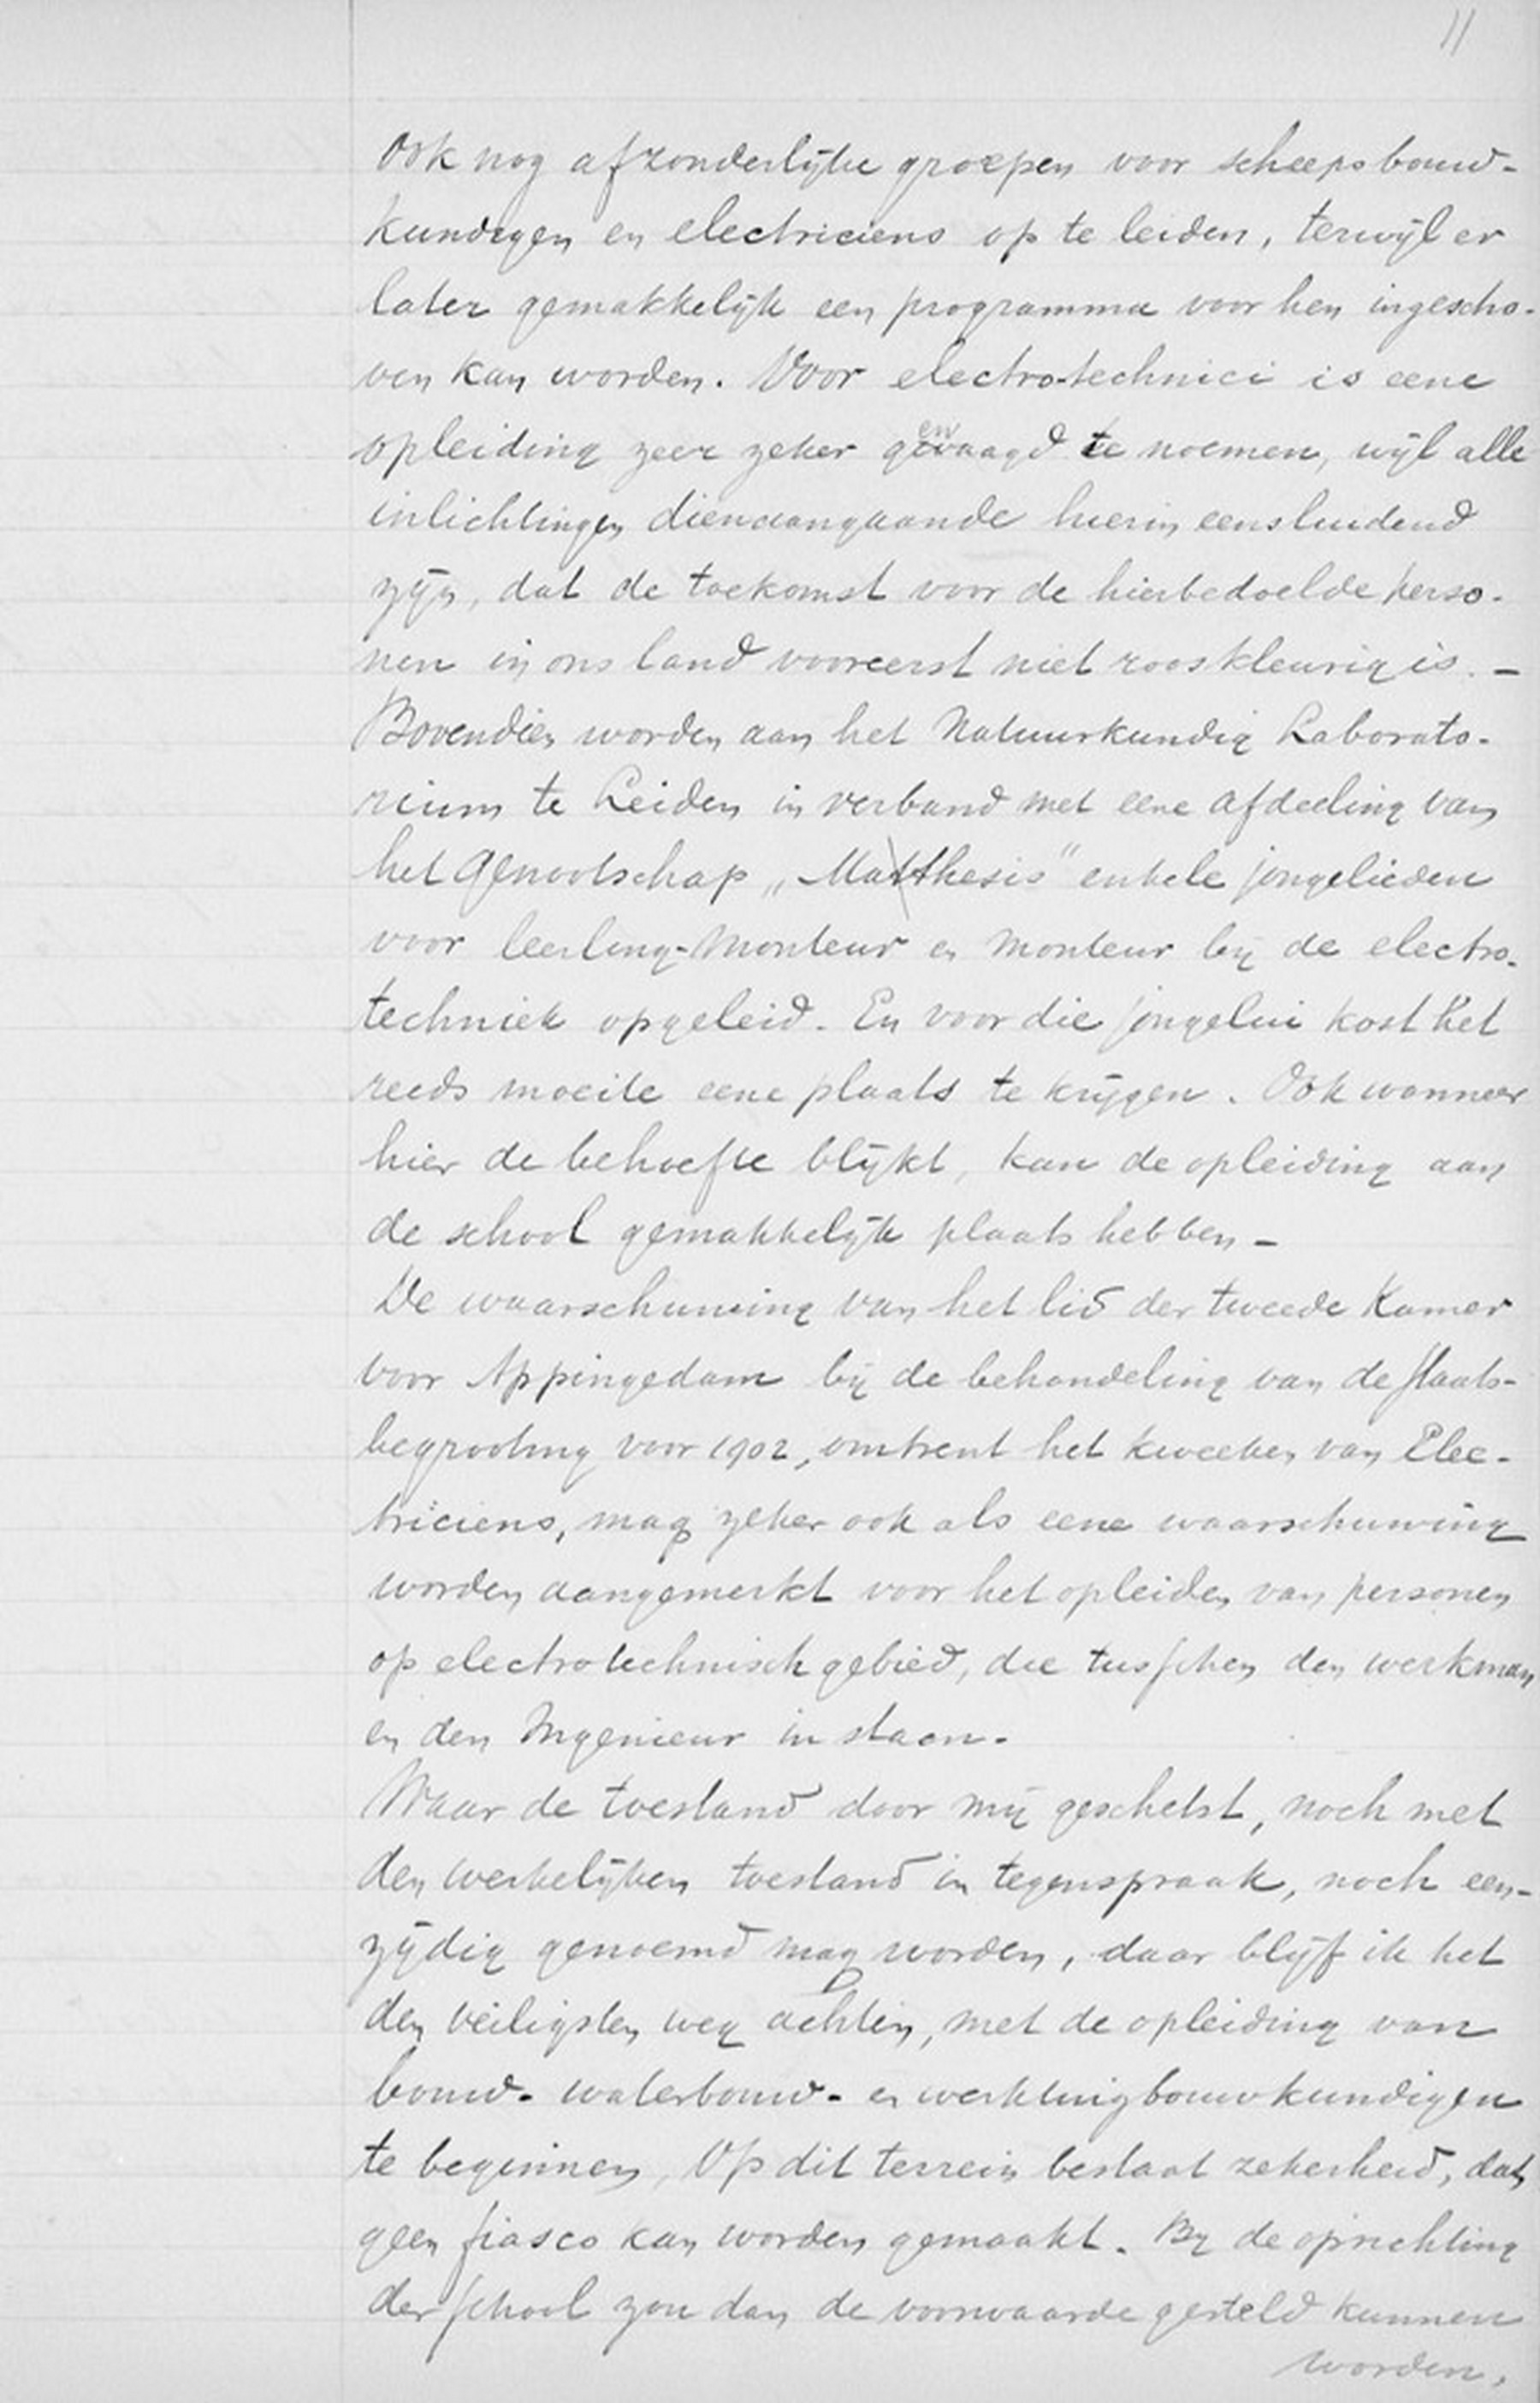 11
Ook nog afzonderlijke groepen voor scheepsbouw-
kundigen en electriciens op te leiden, terwijl er
later gemakkelijk een programma voor hen ingescho-
ven kan worden. Voor electro-technici is eene
opleiding zeer zeker gewaagd te noemen, wijl alle
inlichtingen dienaangaande hierin eensluidend
zijn, dat de toekomst voor de hierbedoelde perso-
nen in ons land vooreerst niet rooskleurig is. -
Bovendien worden aan het Natuurkundig Laborato-
rium te Leiden in verband met eene afdeeling van
het Genootschap „Mathesis" enkele jongelieden
voor leerling-Monteur en Monteur bij de electro-
techniek opgeleid. En voor die jongelui kost het
reeds moeite eene plaats te krijgen. Ook wanneer
hier de behoefte blijkt, kan de opleiding aan
de school gemakkelijk plaats hebben -
De waarschuwing van het lid der tweede Kamer
voor Appingedam bij de behandeling van de staats-
begrooting voor 1902, omtrent het kweeken van Elec-
triciens, mag zeker ook als eene waarschuwing
worden aangemerkt voor het opleiden van personen
op electrotechnisch gebied, die tusschen den werkman
en den Ingenieur in staan.
Waar de toestand door mij geschetst, noch met
den werkelijken toestand in tegenspraak, noch een-
zijdig genoemd mag worden, daar blijf ik het
den veiligsten weg achten, met de opleiding van
bouw- waterbouw- en werktuigbouwkundigen
te beginnen, Op dit terrein bestaat zekerheid, dat
geen fiasco kan worden gemaakt. Bij de oprichting
der school zou dan de voorwaarde gesteld kunnen
worden,